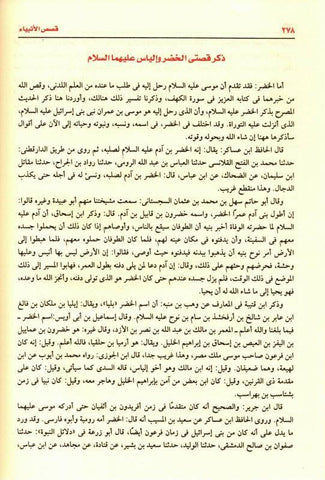 ٢٧٨
قصص الأنبياء
ذكر قصتى الخضر وإلياس عليهما السلام
أما الخضر: فقد تقدم أن موسى عليه السلام رحل إليه فى طلب ما عنده من العلم اللدنى، وقص الله
من خبرهما فى كتابه العزيز فى سورة الكهف، وذكرنا تفسير ذلك هنالك، وأوردنا هنا ذكر الحديث
المصرح بذكر الخضر عليه السلام، وأن الذى رحل إليه هو موسى بن عمران نبى بنى إسرائيل عليه السلام،
الذى أنزلت عليه التوراة. وقد اختلف فى الخضر، فى اسمه، ونسبه، ونبوته وحياته إلى الآن على أقوال
سأذكرها ههنا إن شاء الله وبحوله وقوته.
قال الحافظ ابن عساكر: يقال: إنه الخضر بن آدم عليه السلام لصلبه، ثم روى من طريق الدارقطنى:
حدثنا محمد بن الفتح القلانسى حدثنا العباس بن عبد الله الرومى، حدثنا رواد بن الجراح، حدثنا مقاتل
ابن سليمان، عن الضحاك، عن ابن عباس، قال: الخضر بن آدم لصلبه، ونسئ له فى أجله حتى يكذب
الدجال. وهذا منقطع غريب.
وقال أبو حاتم سهل بن محمد بن عثمان السجستانى: سمعت مشيختنا منهم أبو عبيدة وغيره قالوا:
إن أطول بنى آدم عمرًا الخضر، واسمه خضرون بن قابيل بن آدم. قال: وذكر ابن إسحاق، أن آدم عليه
السلام لما حضرته الوفاة أخبر بنيه أن الطوفان سيقع بالناس، وأوصاهم إذا كان ذلك أن يحملوا جسده
معهم فى السفينة، وأن يدفنوه فى مكان عينه لهم، فلما كان الطوفان حملوه معهم، فلما هبطوا إلى
الأرض أمر نوح بنيه أن يذهبوا ببدنه فيدفنوه حيث أوصى، فقالوا: إن الأرض ليس بها أنيس وعليها
وحشة، فحرضهم وحثهم على ذلك، وقال: إن آدم دعا لمن يلى دفنه بطول العمر، فهابوا المسير إلى ذلك
الموضع فى ذلك الوقت، فلم يزل جسده عندهم حتى كان الخضر هو الذى تولى دفنه، وأنجز الله ما وعده،
فهو يحيا إلى ما شاء الله له أن يحيا.
وذكر ابن قتيبة فى المعارف عن وهب بن منبه: أن اسم الخضر «بليا»، ويقال: إيليا بن ملكان بن فالغ
ابن عابر بن شالخ بن أرفخشذ بن سام بن نوح عليه السلام. وقال إسماعيل بن أبى أويس: اسم الخضر ـ
فيما بلغنا والله أعلم ـ المعمر بن مالك بن عبد الله بن نصر بن الأزد، وقال غيره: هو خضرون بن عمياييل
بن اليفز بن العيص بن إسحاق بن إبراهيم الخليل. ويقال: هو أرميا بن حلقيا، فالله أعلم. وقيل: إنه كان
ابن فرعون صاحب موسى ملك مصر، وهذا غريب جدا. قال ابن الجوزى: رواه محمد بن أيوب عن ابن
لهيعة، وهما ضعيفان. وقيل: إنه ابن مالك وهو أخو إلياس، قاله السدى كما سيأتى، وقيل: إنه كان على
مقدمة ذى القرنين، وقيل: كان ابن بعض من آمن بإبراهيم الخليل وهاجر معه، وقيل: كان نبيا فى زمن
بشتاسب بن بهراسب.
قال ابن جرير: والصحيح أنه كان متقدمًا فى زمن أفريدون بن أثفيان حتى أدركه موسى عليهما
السلام. وروى الحافظ ابن عساكر عن سعيد بن المسيب أنه قال: الخضر أمه رومية وأبوه فارسى. وقد ورد
ما يدل على أنه كان من بنى إسرائيل فى زمن فرعون أيضًا، قال أبو زرعة فى «دلائل النبوة»: حدثنا
صفوان بن صالح الدمشقى، حدثنا الوليد، حدثنا سعيد بن بشير، عن قتادة، عن مجاهد، عن ابن عباس،